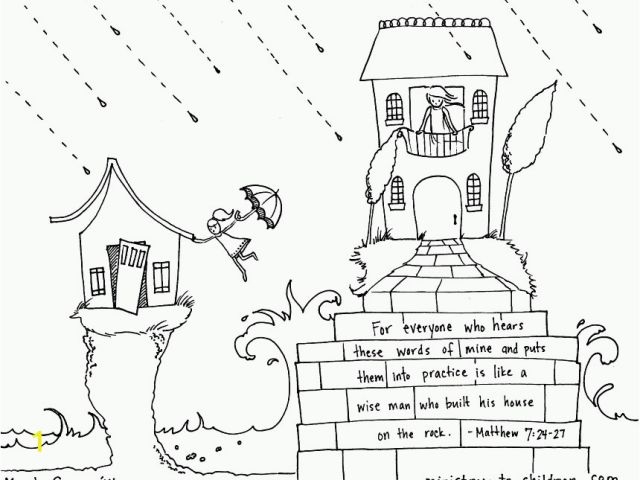 For everyone who hears
these words of mine and puts
them into practice is like a
wise man who built his house
on the rock. - Matthew 7:24-27
ministry-to-children.com